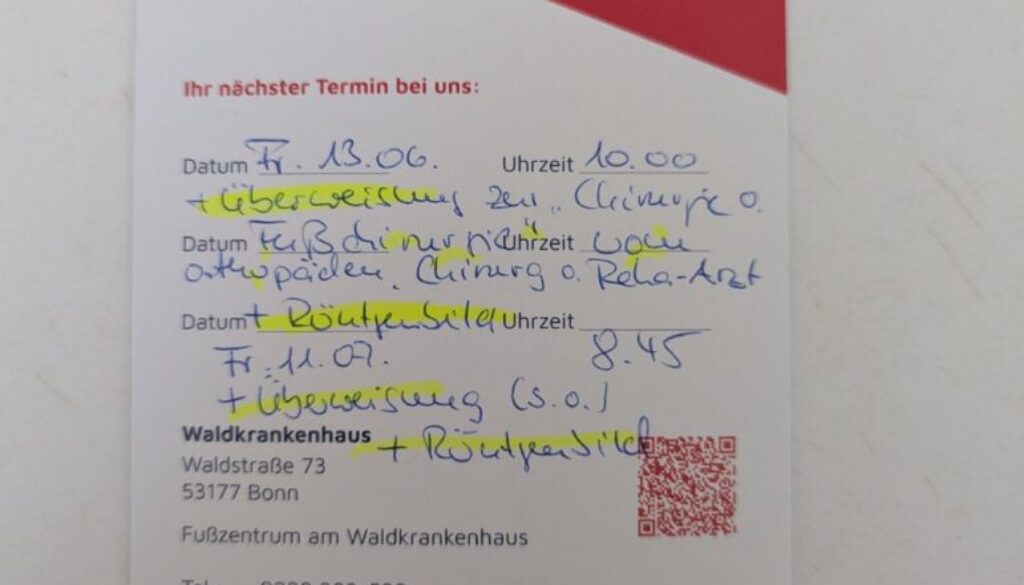 Ihr nächster Termin bei uns:
Datum Fr. 13.06. Uhrzeit 10.00
+ Überweisung zur „Chirurgie o.
Datum Fußchirurgie" Uhrzeit vom
orthopäden, Chirurg o. Reha-Arzt
Datum + Röntgenbild Uhrzeit
Fr. 11.07. 8.45
+ Überweisung (s.o.)
Waldkrankenhaus + Röntgenbild
Waldstraße 73
53177 Bonn
Fußzentrum am Waldkrankenhaus